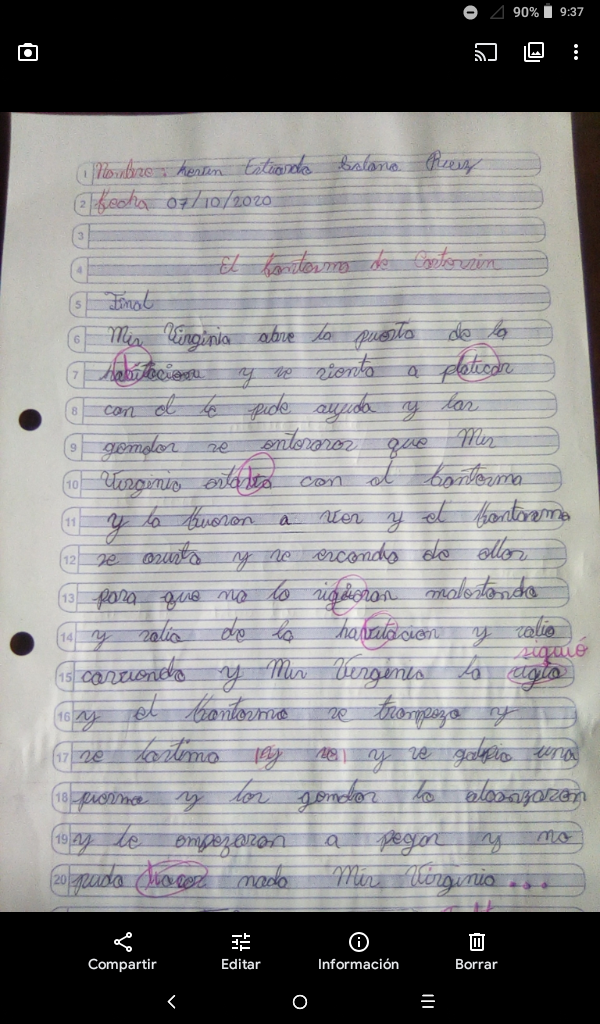 90% 9:37
1 Nombre: Kevin Estuardo Ruiz
2 fecha 07/10/2020
3
4 El fantasma de
5 Final
6 Mis Virginia abre la puerta de la
7 habitacion y se sienta a platicar
8 con el le pide ayuda y las
9 gemelas se enteraron que Mis
10 Virginia estaba con el fantasma
11 y lo fueron a ver y el fantasma
12 se asusta y se esconde de ellos
13 para que no lo sigieran molestando
14 y salio de la havitacion y salio
siguió
15 corriendo y Mis Virginia lo sigio
16 y el fantasma se trompeza y
17 se lastima y se y se golpia una
18 pierna y los gemelos lo alcanzaron
19 y le empezaron a pegar y no
20 pudo hacer nada Mis Virginia...
Compartir Editar Información Borrar